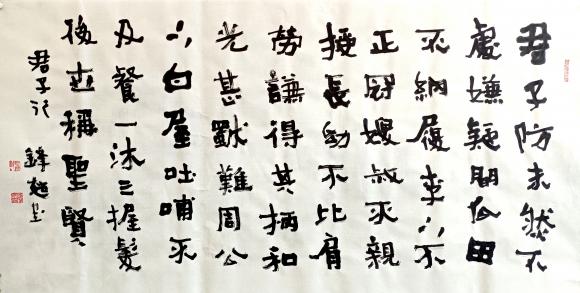 君子防未然不
處嫌疑間瓜田
不納履李下不
正冠嫂叔不親
授長幼不比肩
勞謙得其柄和
光甚獸難周公
下白屋吐哺不
及餐一沐三握髮
後世稱聖賢
君子行